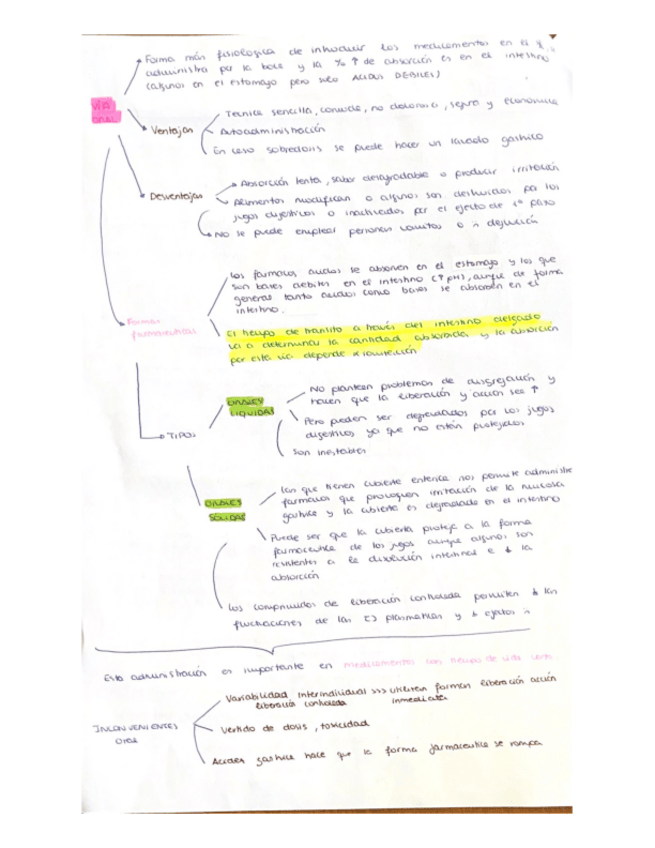 Forma más fisiologica de introducir los medicamentos en el
administra por la boca y la % ↑ de absorción es en el intestino
(algunos en el estomago pero solo ACIDOS DEBILES)
VÍA
ORAL
Ventajas
Tecnica sencilla, comoda, no dolorosa, segura y economica
Autoadministración
En caso sobredosis se puede hacer un lavado gastrico
Desventajas
Absorción lenta, sabor desagradable o producir irritación
Alimentos modifican o algunos son destruidos por los
jugos digestivos o inactivados por el efecto de 1º paso
No se puede emplear personas vomitos o deglución
Formas
farmaceuticas
Los farmacos acidos se absorven en el estomago y los que
son bases debiles en el intestino (↑pH), aunque de forma
general tanto acidos como bases se absorben en el
intestino.
El tiempo de transito a traves del intestino delgado
va a determinar la cantidad absorbida y la absorción
por esta via depende x ionización
TIPOS
ORALES
LIQUIDAS
No plantean problemas de disgregación y
hacen que la liberación y acción sea ↑
Pero pueden ser degradados por los jugos
digestivos, ya que no están protegidos
Son inestables
ORALES
SOLIDAS
Las que tienen cubierta enterica nos permite administrar
farmacos que provoquen irritación de la mucosa
gastrica y la cubierta es degradada en el intestino
Puede ser que la cubierta proteja a la forma
farmaceutica de los jugos aunque algunos son
resistentes a la disolución intestinal e ↓ la
absorción
Los comprimidos de liberación controlada permiten ↓ las
fluctuaciones de las [ ] plasmaticas y ↓ efectos
Esta administración es importante en medicamentos con tiempo de vida corta.
INCONVENIENTES
ORAL
Variabilidad interindividual >>> utilizan formas liberación acción
liberación controlada inmediata
Vertido de dosis, toxicidad
Acidez gastrica hace que la forma farmaceutica se rompa